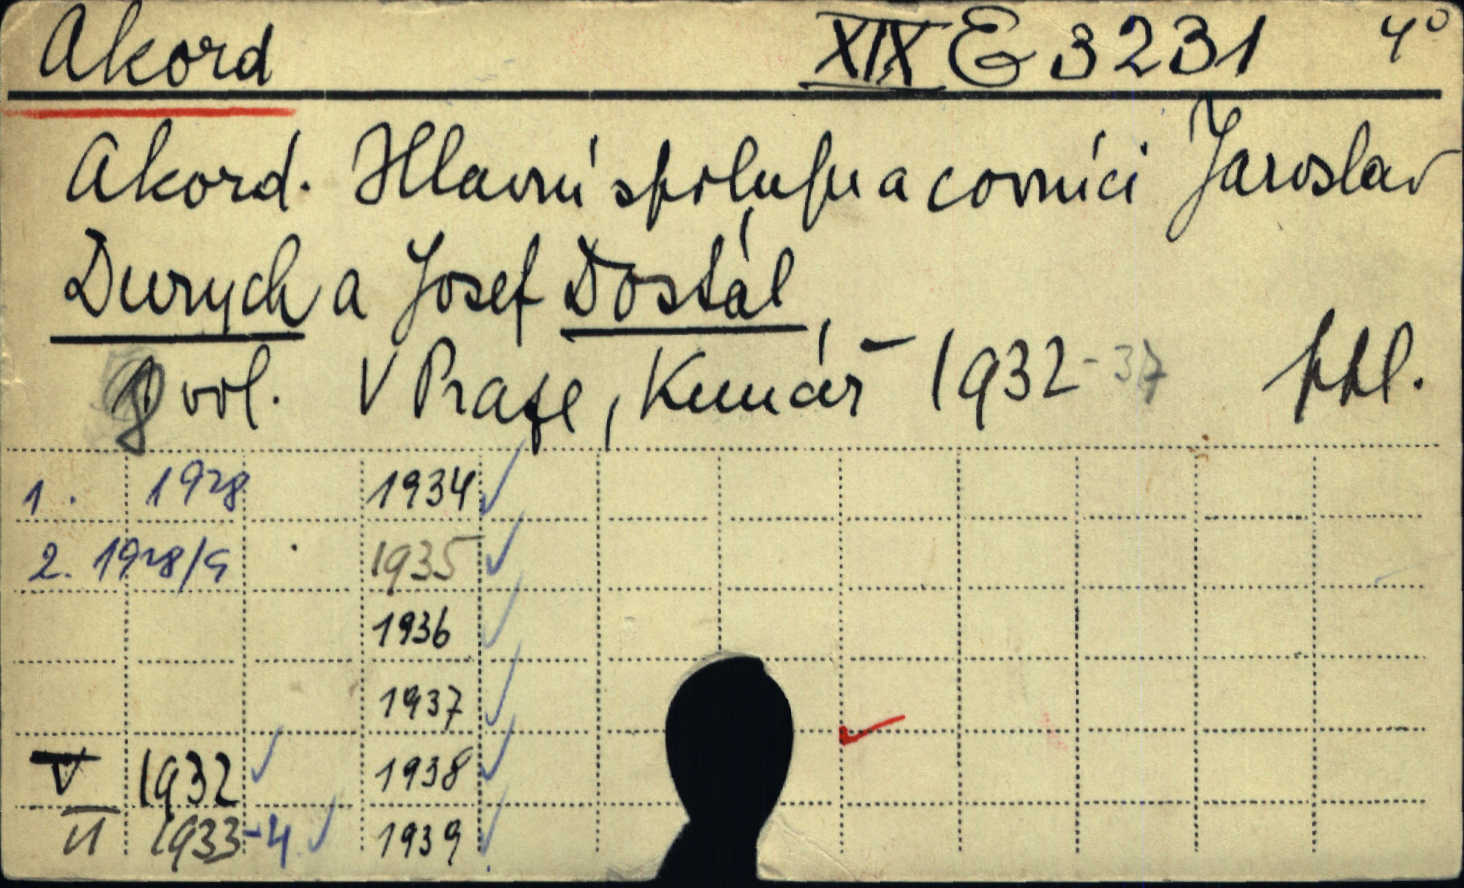 Akord XIX E 3231 4°
Akord. Hlavní spolupracovníci Jaroslav
Durych a Josef Dostál
vol. V Praze, Kuncíř 1932-37
1. 1928 1934 ✓
2. 1928/9 1935 ✓
1936 ✓
1937 ✓
V 1932 ✓ 1938 ✓
VI 1933-4 ✓ 1939 ✓